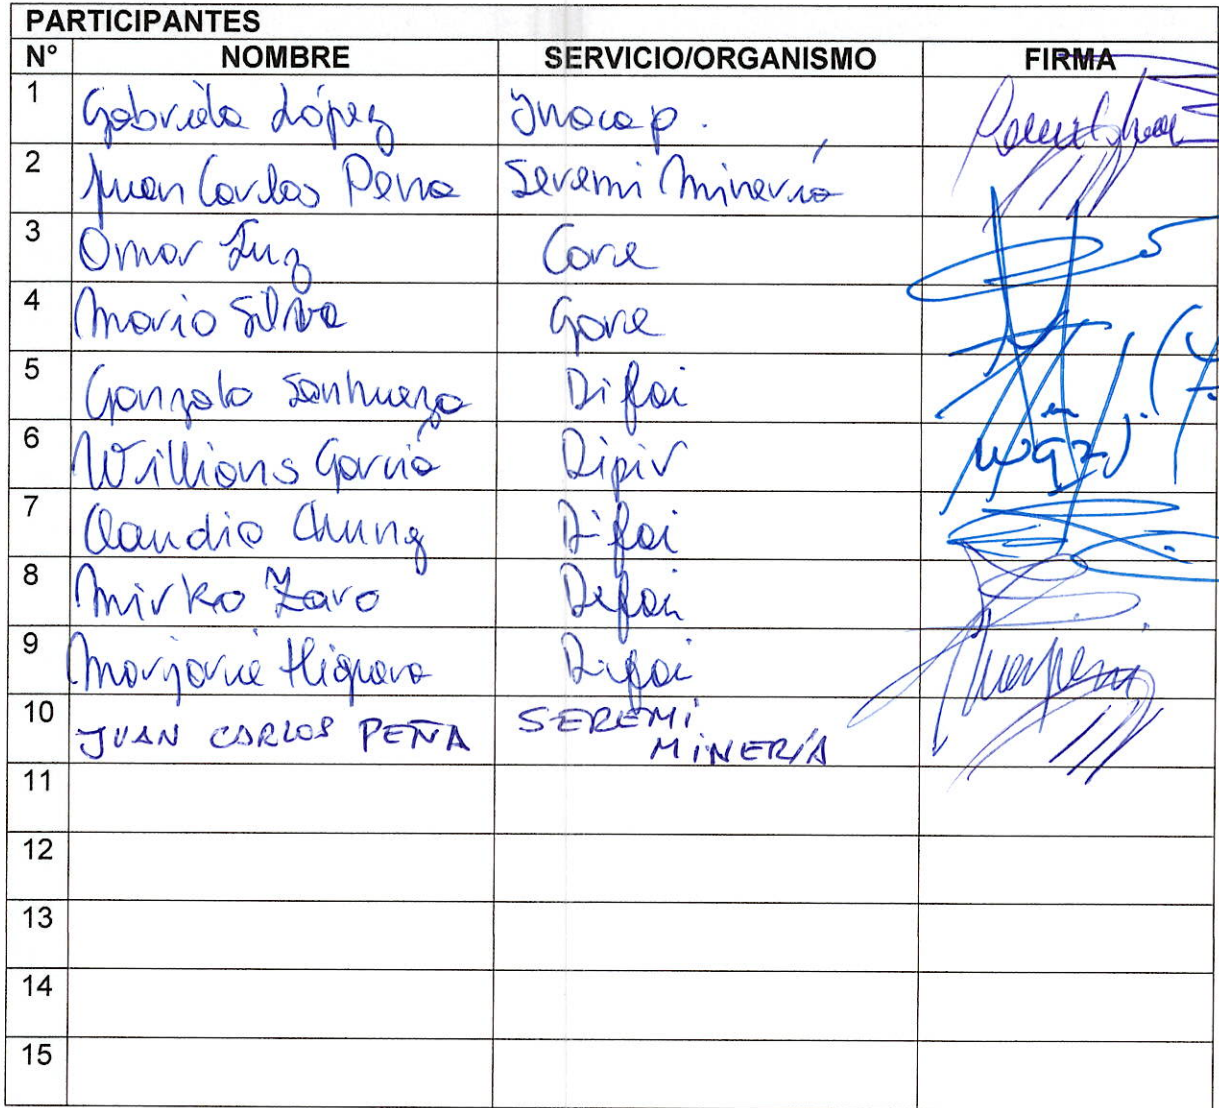 PARTICIPANTES
N° NOMBRE SERVICIO/ORGANISMO FIRMA
1 Gabriela López Inacap.
2 Juan Carlos Pena Seremi Minería
3 Omar Luz Core
4 Mario Silva Gore
5 Gonzalo Sanhueza Difoi
6 Willians García Dipir
7 Claudio Chung Difoi
8 Mirko Zaro Difoi
9 Marjorie Higuera Difoi
10 JUAN CARLOS PEÑA SEREMI
MINERÍA
11
12
13
14
15